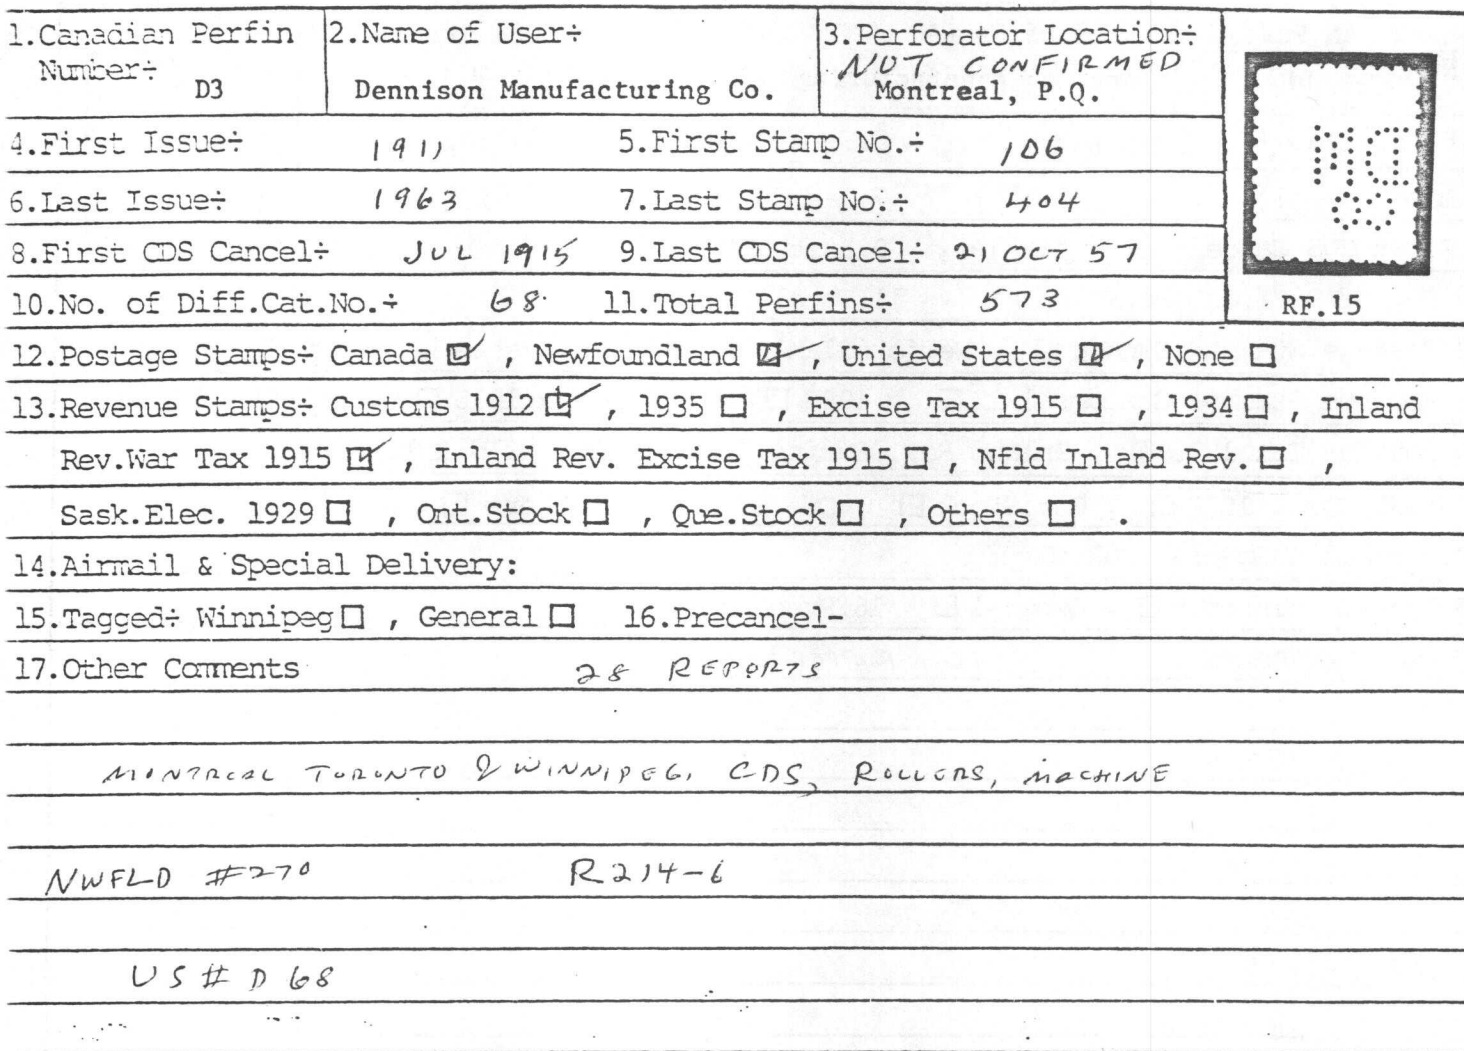 1.Canadian Perfin Number÷ D3
2.Name of User÷
Dennison Manufacturing Co.
3.Perforator Location÷
NOT CONFIRMED
Montreal, P.Q.
4.First Issue÷ 1911 5.First Stamp No.÷ 106
6.Last Issue÷ 1963 7.Last Stamp No.÷ 404
8.First CDS Cancel÷ JUL 1915 9.Last CDS Cancel÷ 21 OCT 57
10.No. of Diff.Cat.No.÷ 68 11.Total Perfins÷ 573
RF.15
12.Postage Stamps÷ Canada ☑ , Newfoundland ☑ , United States ☑ , None ☐
13.Revenue Stamps÷ Customs 1912 ☑ , 1935 ☐ , Excise Tax 1915 ☐ , 1934 ☐ , Inland
Rev.War Tax 1915 ☑ , Inland Rev. Excise Tax 1915 ☐ , Nfld Inland Rev. ☐ ,
Sask.Elec. 1929 ☐ , Ont.Stock ☐ , Que.Stock ☐ , Others ☐ .
14.Airmail & Special Delivery:
15.Tagged÷ Winnipeg ☐ , General ☐ 16.Precancel-
17.Other Comments 28 REPORTS
MONTREAL TORONTO & WINNIPEG, CDS, ROLLERS, MACHINE
NWFLD #270 R214-6
US # D 68